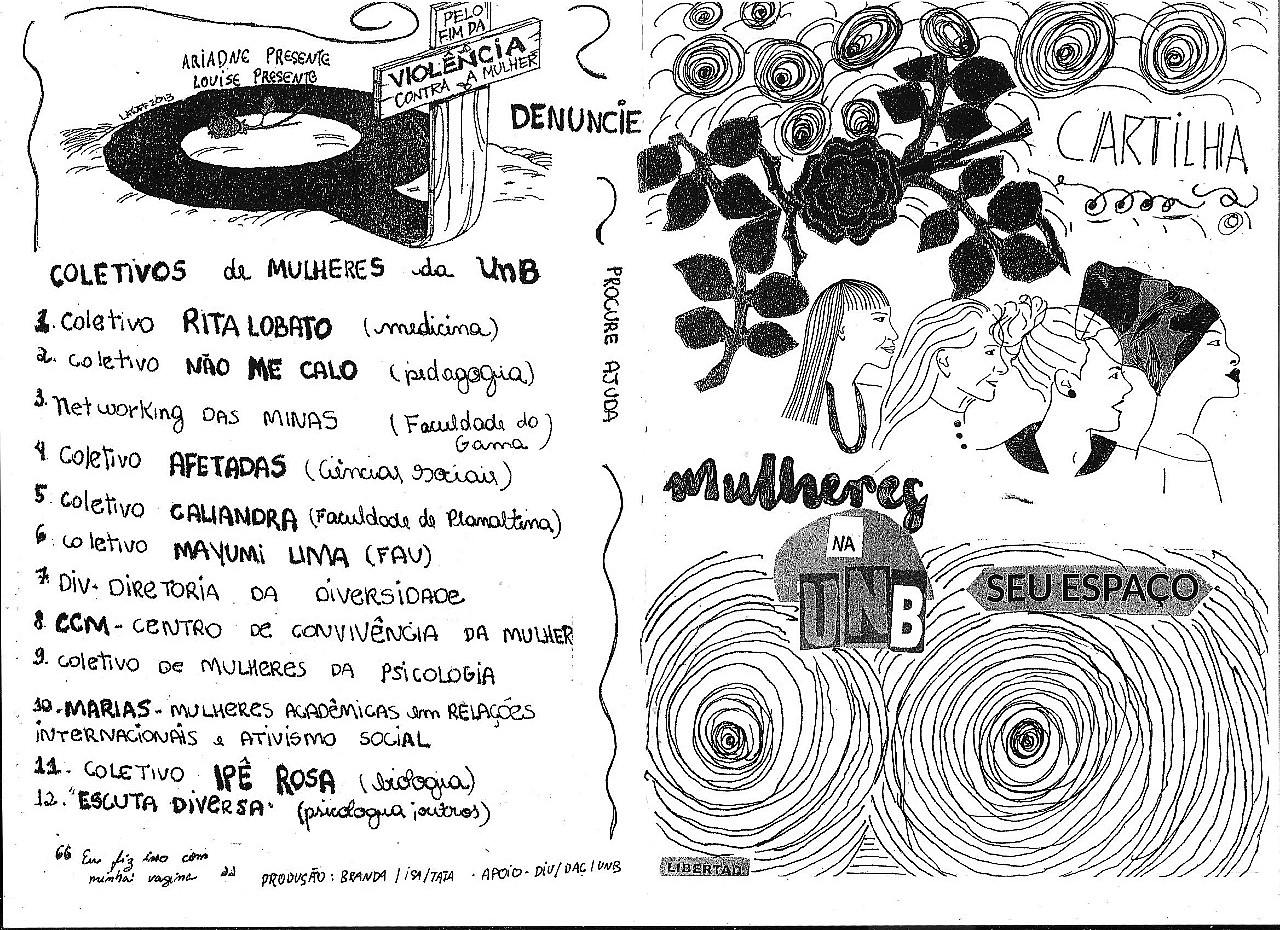 ARIADNE PRESENTE
LOUISE PRESENTE
PELO
FIM DA
VIOLÊNCIA
CONTRA A MULHER
DENUNCIE
PROCURE AJUDA
COLETIVOS de MULHERES da UnB
1. Coletivo RITA LOBATO (medicina)
2. coletivo NÃO ME CALO (pedagogia)
3. Networking DAS MINAS (Faculdade do
Gama)
4. Coletivo AFETADAS (Ciências sociais)
5. Coletivo CALIANDRA (Faculdade de Planaltina)
6. coletivo MAYUMI LIMA (FAV)
7. DIV- DIRETORIA DA DIVERSIDADE
8. CCM - CENTRO DE CONVIVÊNCIA DA MULHER
9. coletivo DE MULHERES DA PSICOLOGIA
10. MARIAS - MULHERES ACADÊMICAS em RELAÇÕES
INTERNACIONAIS e ATIVISMO SOCIAL
11. COLETIVO IPÊ ROSA (biologia)
12. "ESCUTA DIVERSA" (psicologia, outros)
“ Eu fiz isso com
minha vagina ”
PRODUÇÃO: BRANDA / ISA/TATA - APOIO - DIV/DAC/UNB
CARTILHA
Mulheres
NA
UNB
SEU ESPAÇO
LIBERTAD